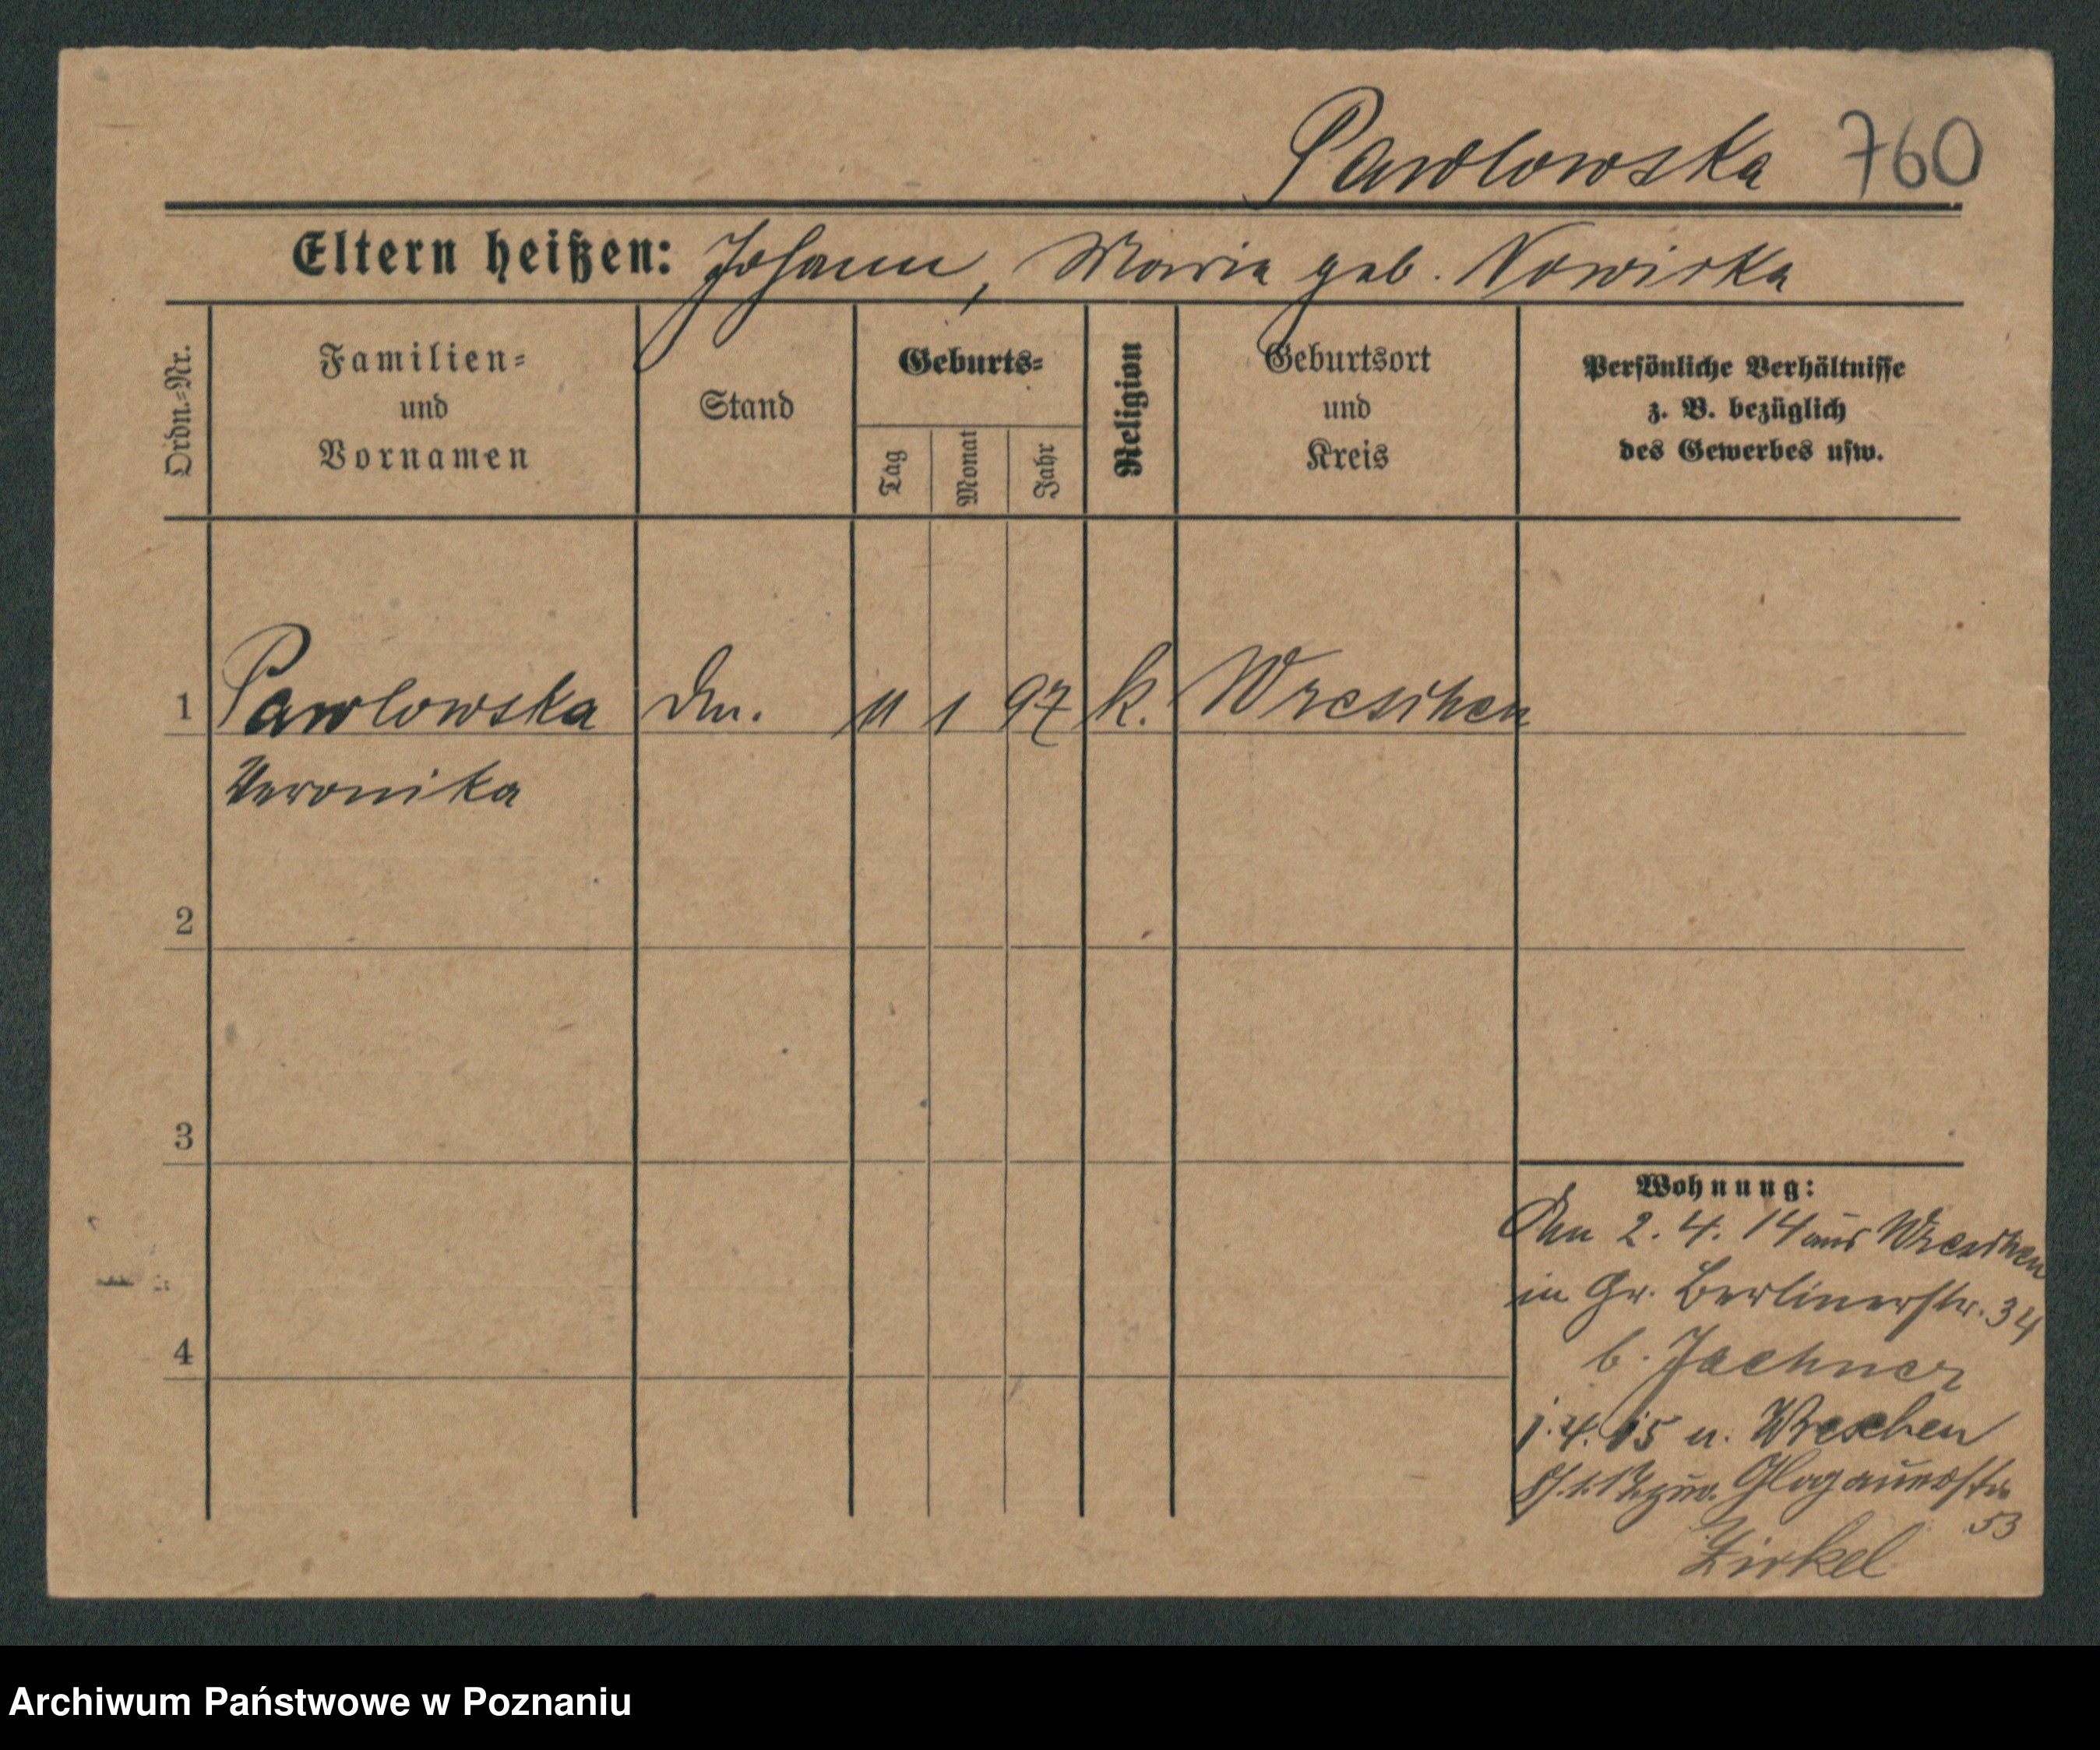 Pawlowska 760
Eltern heißen: Johann, Maria geb. Nowicka
Ordn.-Nr.
Familien-
und
Vornamen
Stand
Geburts-
Tag
Monat
Jahr
Religion
Geburtsort
und
Kreis
Persönliche Verhältnisse
z. B. bezüglich
des Gewerbes usw.
1 Pawlowska 11 1 97 k. Wreschen
Veronika
2
3
4
Wohnung:
Den 2. 4. 14 aus Wreschen
in Gr. Berlinerstr. 34
b. Jachner
1.4.15 n. Wreschen
Glogauerstr.
53
Zirkel
Archiwum Państwowe w Poznaniu